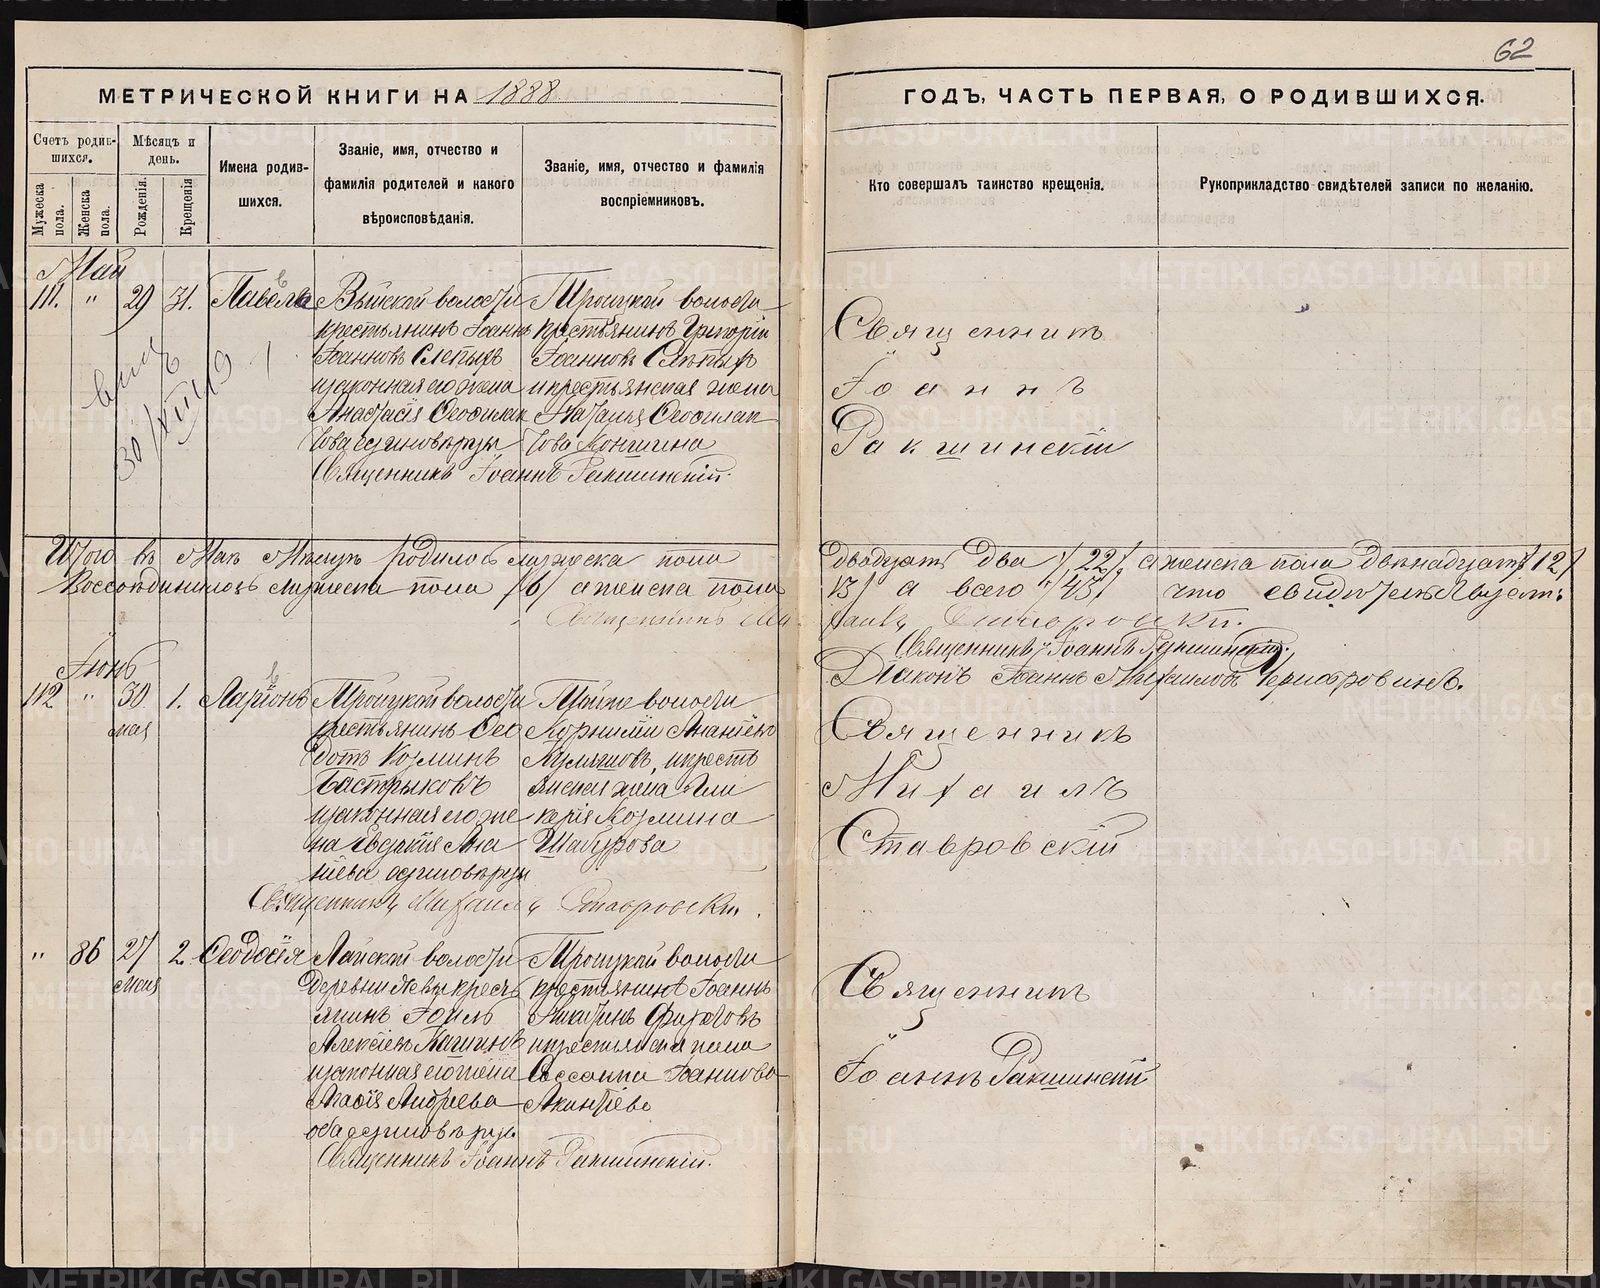 62
МЕТРИЧЕСКОЙ КНИГИ НА 1888
ГОДЪ, ЧАСТЬ ПЕРВАЯ, О РОДИВШИХСЯ.
Счетъ родив-
шихся.
Мужеска пола.
Женска пола.
Мѣсяцъ и
день.
Рожденія.
Крещенія
Имена родив-
шихся.
Званіе, имя, отчество и
фамилія родителей и какого
вѣроисповѣданія.
Званіе, имя, отчество и фамилія
воспріемниковъ.
Кто совершалъ таинство крещенія.
Рукоприкладство свидѣтелей записи по желанію.
Май
111. " 29 31. Павелъ
Выйской волости
крестьянинъ Іоаннъ
Іоанновъ Слепыхъ
изаконная его жена
Анастасія Ѳеофилак
това единоверцы
Троицкой волости
крестьянинъ Григорій
Іоанновъ Слепыхъ
икрестьянская жена
Наталья Ѳеофилак
това
Священникъ Іоаннъ Ракшинскій.
Священникъ
Іоаннъ
Ракшинскій
30/XII 19
Итого въ Мае Месяце родилось мужеска пола
двадцать два /22/, а женска пола двенадцать /12/
мужеска пола /6/ а женска пола
13/ а всего /43/ что свидетельствуемъ
Священникъ Ми-
хаилъ Ставровскій.
Священникъ Іоаннъ Ракшинскій.
Діаконъ Іоаннъ Михаиловъ
Іюнь
112 " 30 мая 1. Ларіонъ
Троицкой волости
крестьянинъ Ѳео
дотъ Козминъ
Бастрыковъ
изаконная его же
на Евдокія Ана
ніева единоверцы
волости
Корнилій Ананіевъ
икресть
янская жена Гли
керія Козмина
Шабурова
Священникъ Михаилъ Ставровскій.
Священникъ
Михаилъ
Ставровскій
" 86 27 мая 2. Ѳеодосія
Лайской волости
деревни кресть
янинъ Іоиль
Алексіевъ
изаконная его жена
Андреева
оба единоверцы
Троицкой волости
крестьянинъ Іоаннъ
Никитинъ
икрестьянска жена
Іоаннова
Священникъ Іоаннъ Ракшинскій.
Священникъ
Іоаннъ Ракшинскій
METRIKI.GASO-URAL.RU